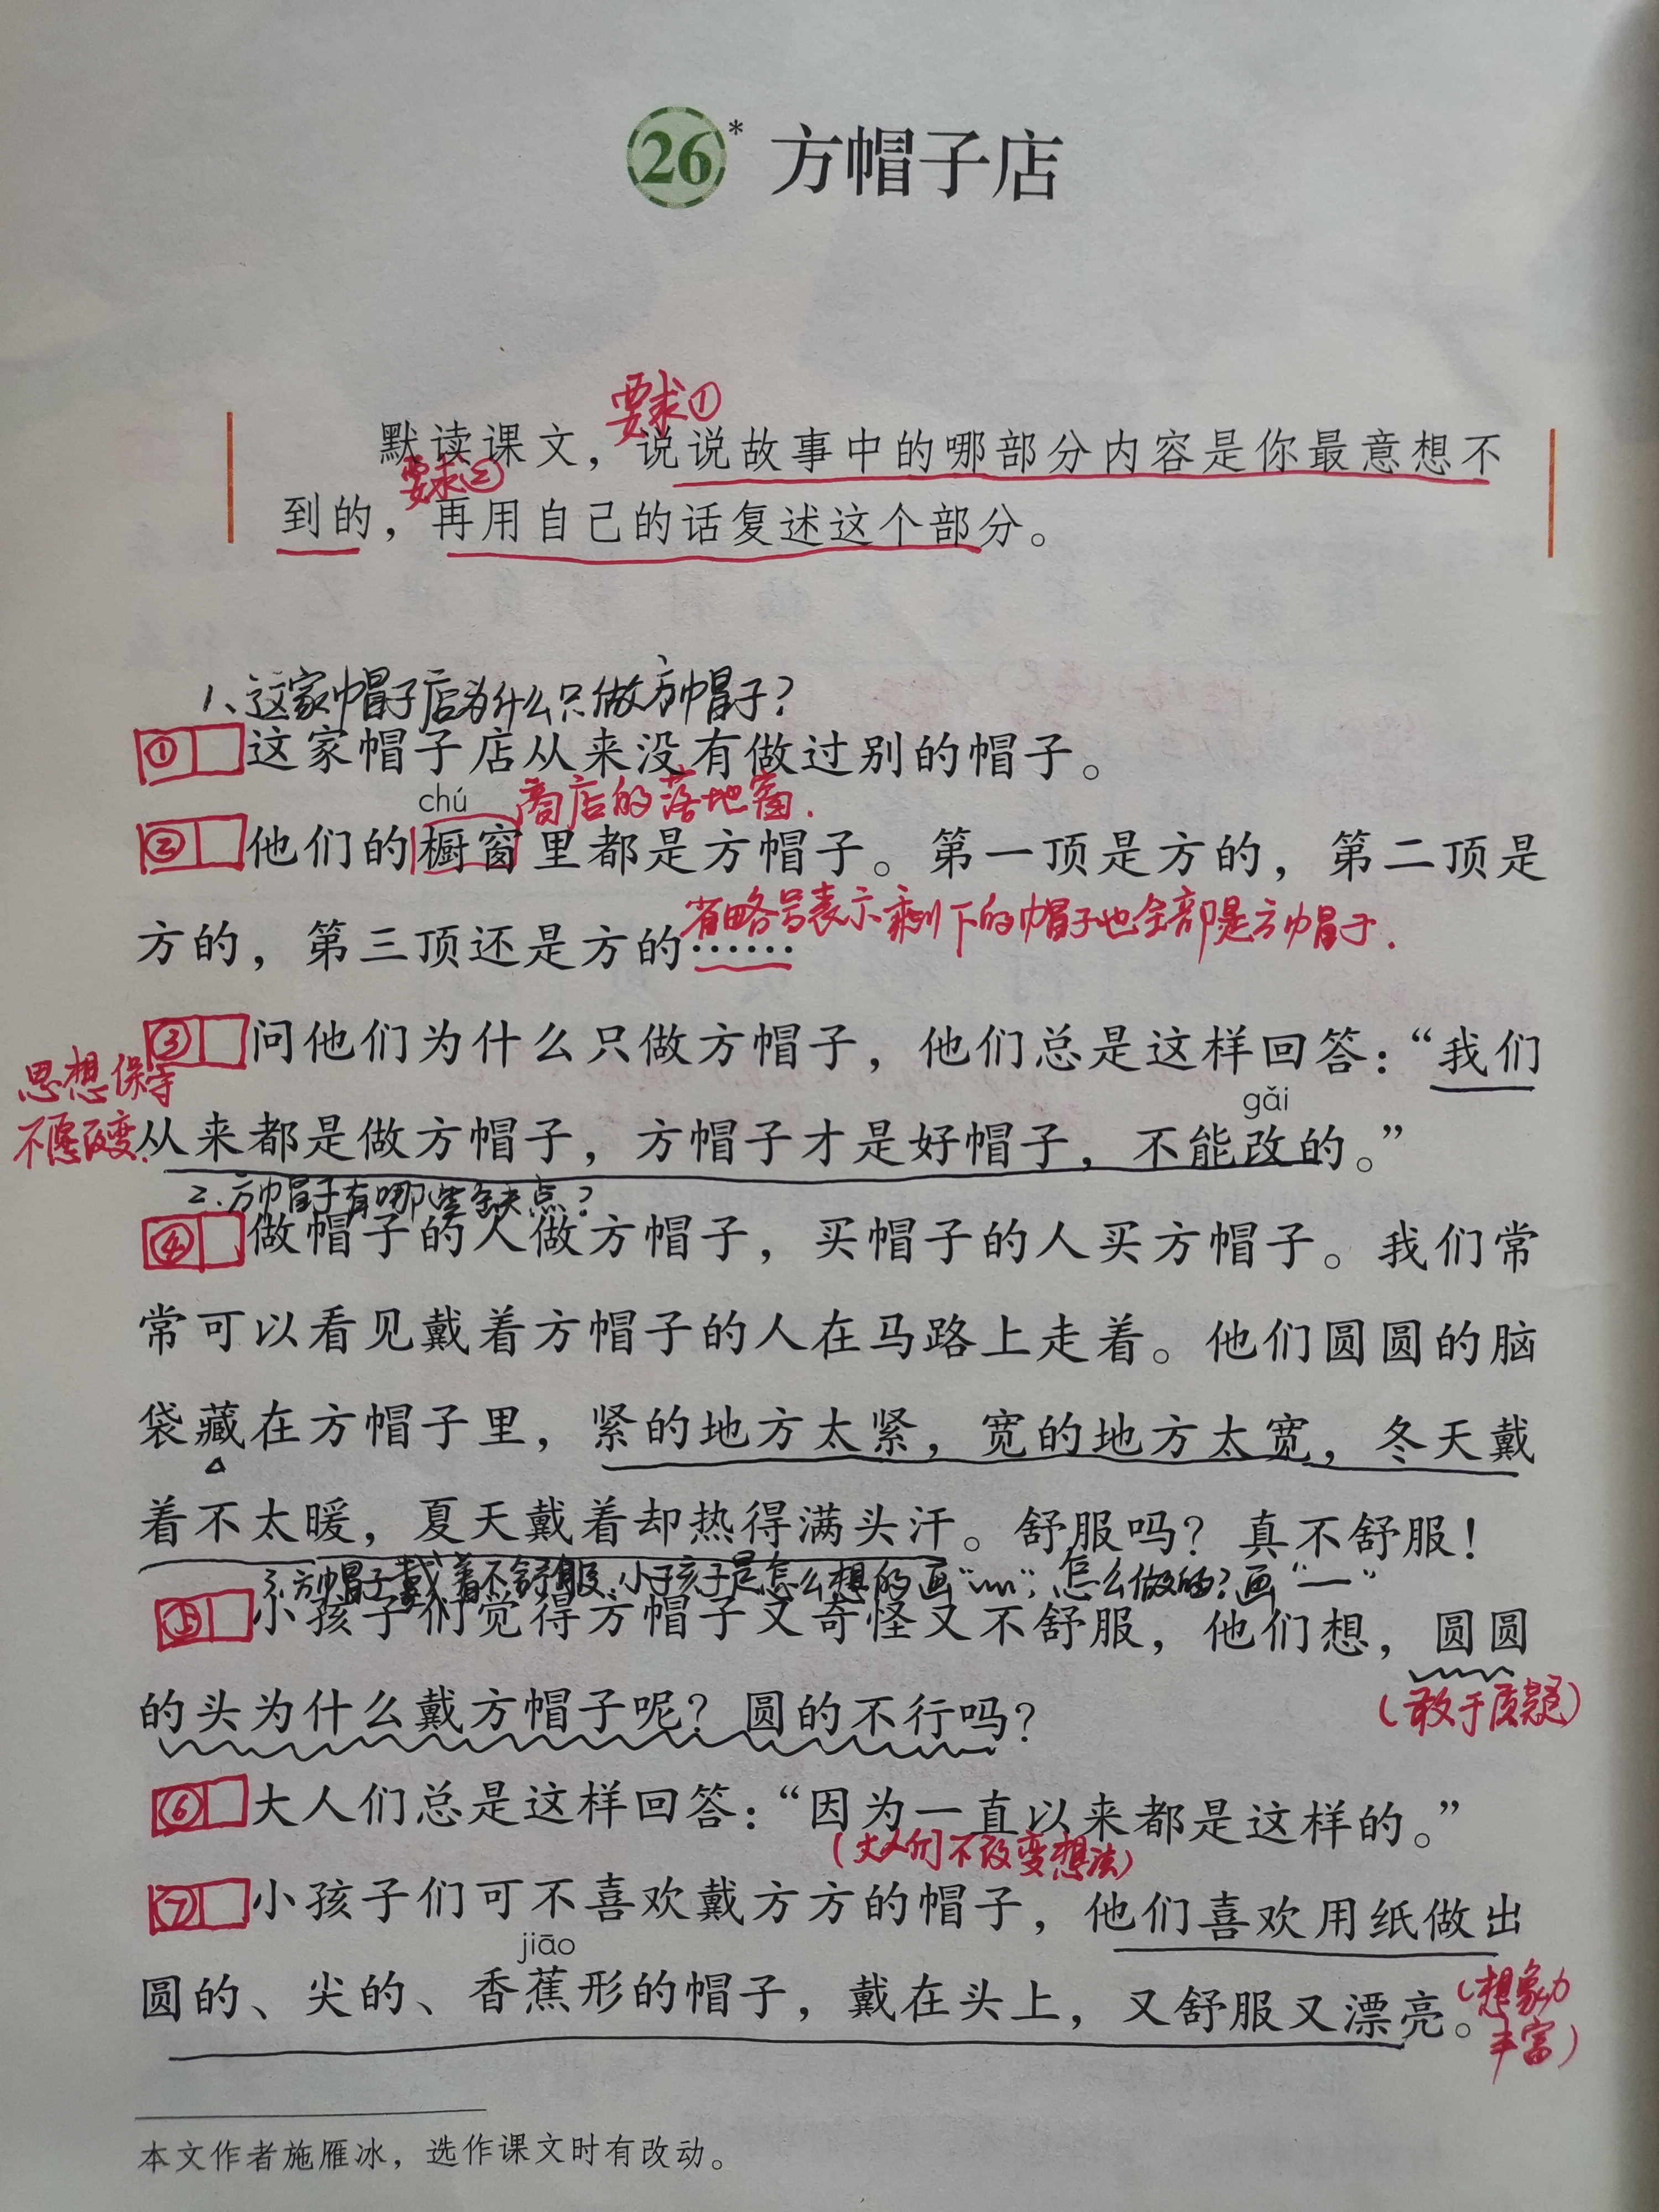 26* 方帽子店
要求①
默读课文，说说故事中的哪部分内容是你最意想不
要求②
到的，再用自己的话复述这个部分。
1、这家帽子店为什么只做方帽子？
①这家帽子店从来没有做过别的帽子。
chú 商店的落地窗.
②他们的橱窗里都是方帽子。第一顶是方的，第二顶是
省略号表示剩下的帽子也全部是方帽子.
方的，第三顶还是方的……
③问他们为什么只做方帽子，他们总是这样回答：“我们
思想保守
不愿改变.
gǎi
从来都是做方帽子，方帽子才是好帽子，不能改的。”
2.方帽子有哪些缺点？
④做帽子的人做方帽子，买帽子的人买方帽子。我们常
常可以看见戴着方帽子的人在马路上走着。他们圆圆的脑
袋藏在方帽子里，紧的地方太紧，宽的地方太宽，冬天戴
着不太暖，夏天戴着却热得满头汗。舒服吗？真不舒服！
3.方帽子戴着不舒服，小孩子是怎么想的画“﹏”；怎么做的？画“—”
⑤小孩子们觉得方帽子又奇怪又不舒服，他们想，圆圆
(敢于质疑)
的头为什么戴方帽子呢？圆的不行吗？
⑥大人们总是这样回答：“因为一直以来都是这样的。”
(大人们不改变想法)
⑦小孩子们可不喜欢戴方方的帽子，他们喜欢用纸做出
jiāo
圆的、尖的、香蕉形的帽子，戴在头上，又舒服又漂亮。
(想象力
丰富)
本文作者施雁冰，选作课文时有改动。